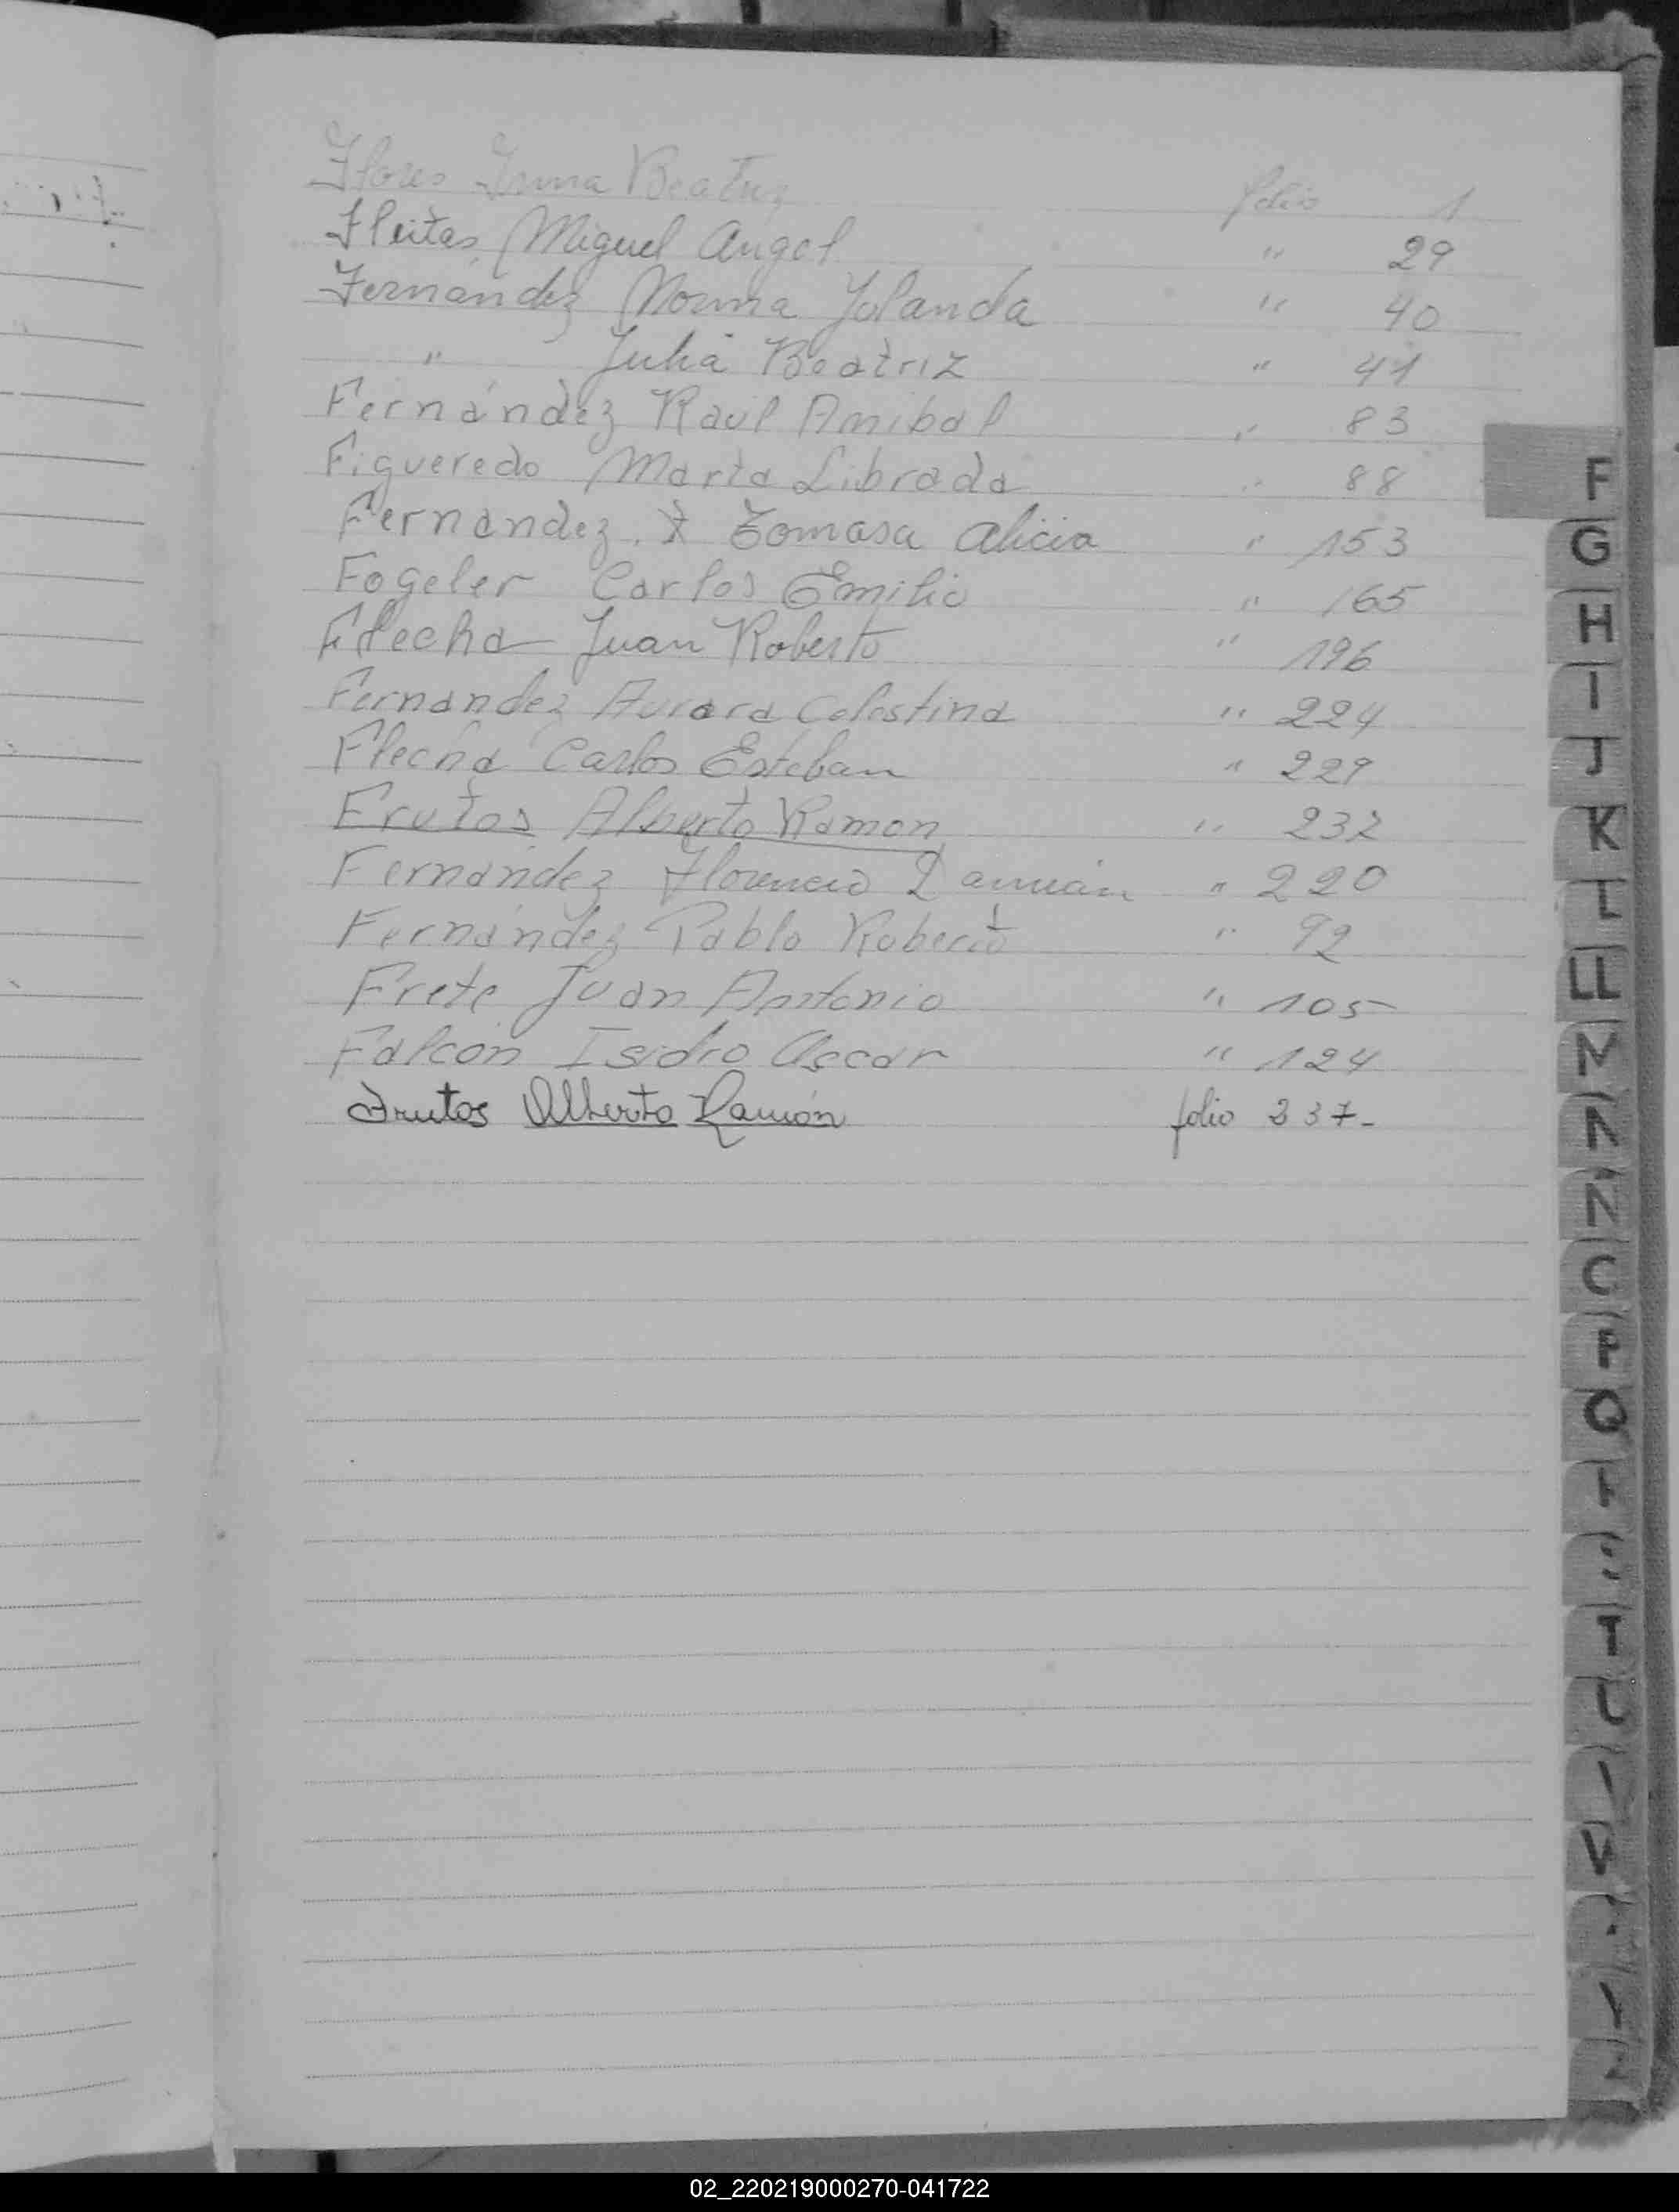 Flores Irma Beatriz folio 1
Fleitas, Miguel Angel " 29
Fernández Norma Yolanda " 40
" Julia Beatriz " 41
Fernández Raúl Anibal " 83
Figueredo Marta Librada " 88
Fernández. Tomasa Alicia " 153
Fogeler Carlos Emilio " 165
Flecha Juan Roberto " 196
Fernandez Aurora Celestina " 224
Flecha Carlos Esteban " 229
Frutos Alberto Ramon " 232
Fernández Florencio Damián " 220
Fernández Pablo Roberto " 92
Frete Juan Antonio " 105
Falcón Isidro Oscar " 124
Frutos Alberto Ramón folio 237-
F
G
H
I
J
K
L
LL
M
N
Ñ
O
P
Q
T
U
V
02_220219000270-041722